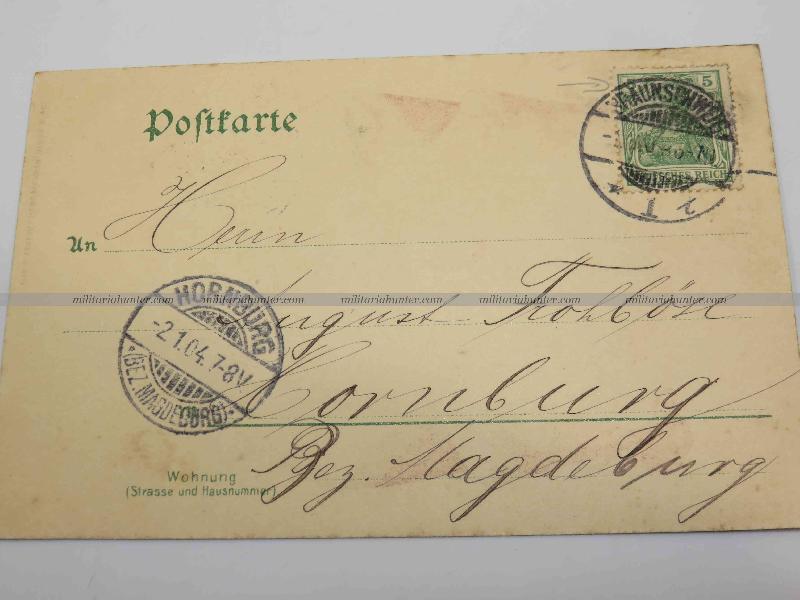 Postkarte
5
BRAUNSCHWEIG
DEUTSCHES REICH
An Herrn
August Fohlböse
Hornburg
Bez. Magdeburg
HORNBURG
-2.1.04.7-8V.
*(BEZ. MAGDEBURG)*
Wohnung
(Strasse und Hausnummer)
militariahunter.com militariahunter.com militariahunter.com militariahunter.com militariahunter.com